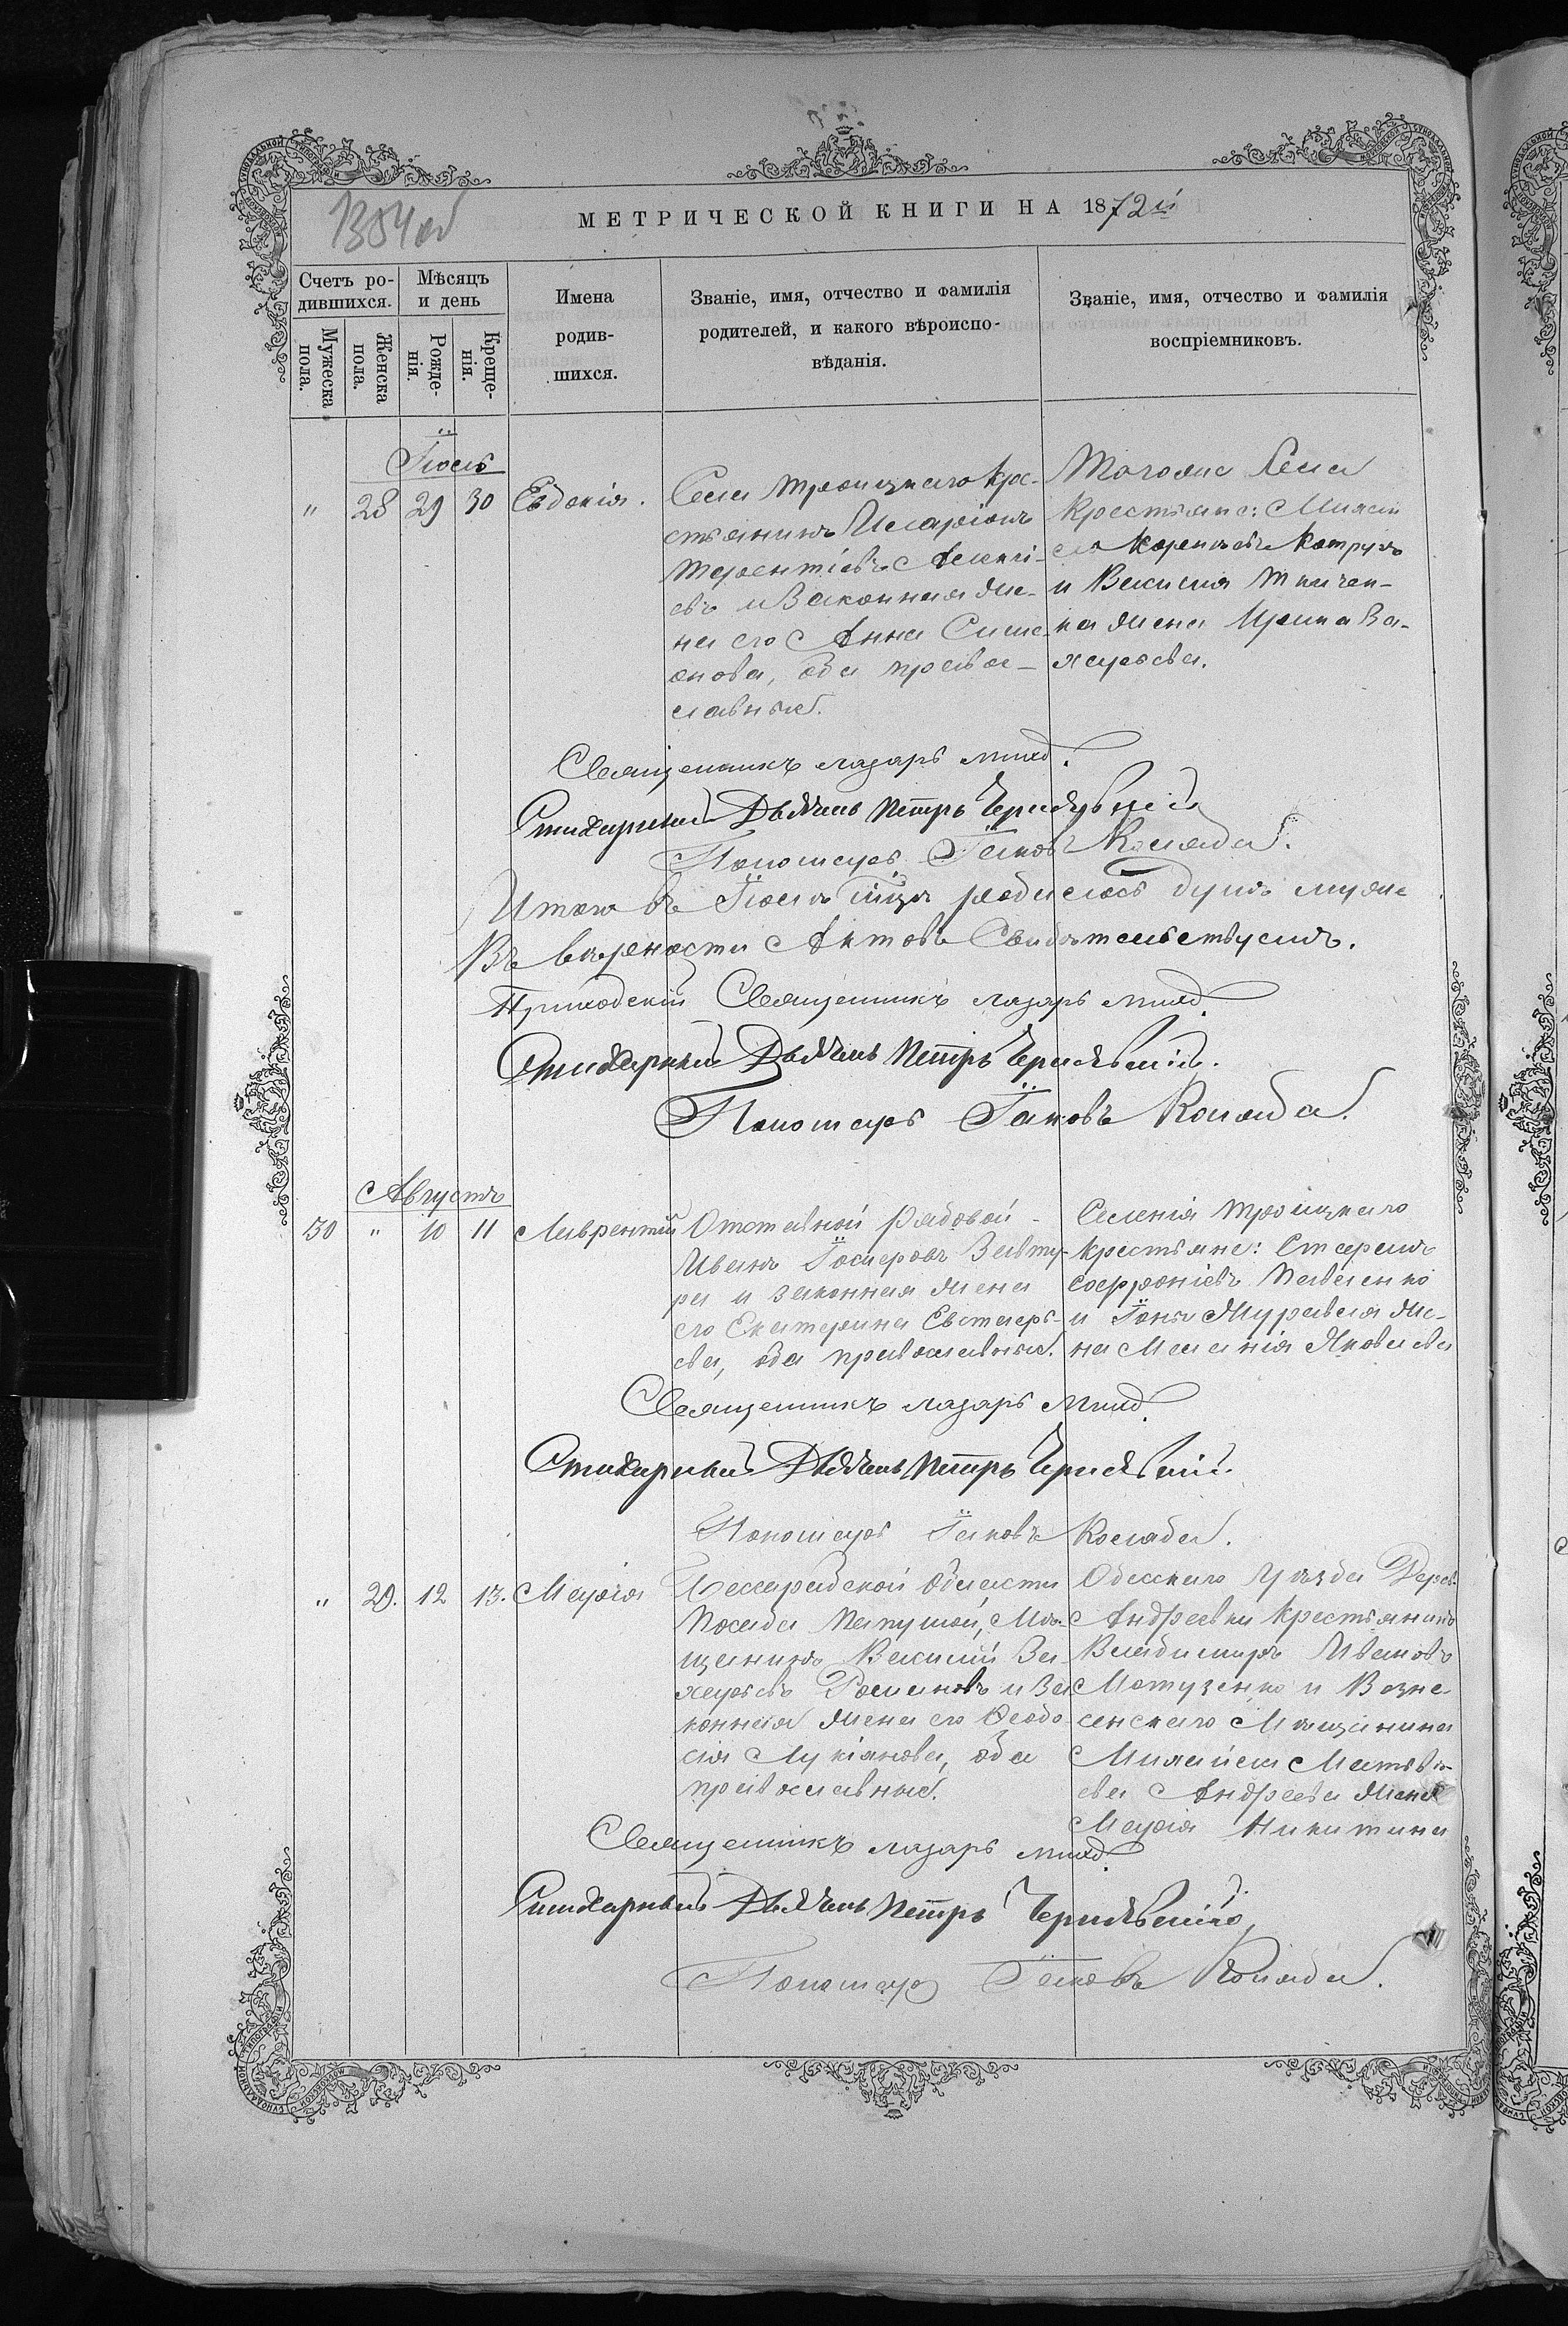 1304 об
МЕТРИЧЕСКОЙ КНИГИ НА 1872й
Счетъ ро-
дившихся.
Мѣсяцъ
и день
Мужеска
пола.
Женска
пола.
Рожде-
нія.
Креще-
нія.
Имена
родив-
шихся.
Званіе, имя, отчество и фамилія
родителей, и какого вѣроиспо-
вѣданія.
Званіе, имя, отчество и фамилія
воспріемниковъ.
Іюль
" 28 29 30 Евдокія.
Села Троицкаго Кре-
стьянинъ Иларіонъ
Терентіевъ
евъ и Законная Же-
на его Анна Симе-
онова, оба право-
славные.
Тогоже Села
Крестьяне:
Корніевъ
и Василія Ткачен-
ка жена Ирина За-
харьева.
Священникъ Лазарь
Стихарный Дьячекъ Петръ
Пономарь Іаковъ Коляда.
Итого въ Іюлѣ родилось душъ муже
Въ вѣрности Актовъ Свидѣтельствуемъ.
Приходскій Священникъ Лазарь
Стихарный Дьячекъ Петръ
Пономарь Іаковъ Коляда.
Августъ
30 " 10 11 Лаврентій
Отставной Рядовой
Иванъ Іосифовъ
ра и законная жена
его Екатерина Евстафь-
ева, оба православные.
Селенія Троицкаго
Крестьяне:
Софроніевъ Павленко
и Іоны Журавля же-
на Меланія Яковлева
Священникъ Лазарь
Стихарный Дьячекъ Петръ
Пономарь Іаковъ Коляда.
" 29. 12 13. Марія
Бессарабской Области
Посада Папушой, Мѣ-
щанинъ Василій За-
харьевъ Романовъ и За
конная жена его Ѳеодо
сія Лукіянова, оба
православные.
Одесскаго Уѣзда Дерев.
Андреевки Крестьянинъ
Владимиръ Ивановъ
Мотузенко и Возне-
сенскаго Мѣщанина
Михаила Матвѣ-
ева Андреева жена
Марія Никитина
Священникъ Лазарь
Стихарный Дьячекъ Петръ
Пономарь Іаковъ Коляда.